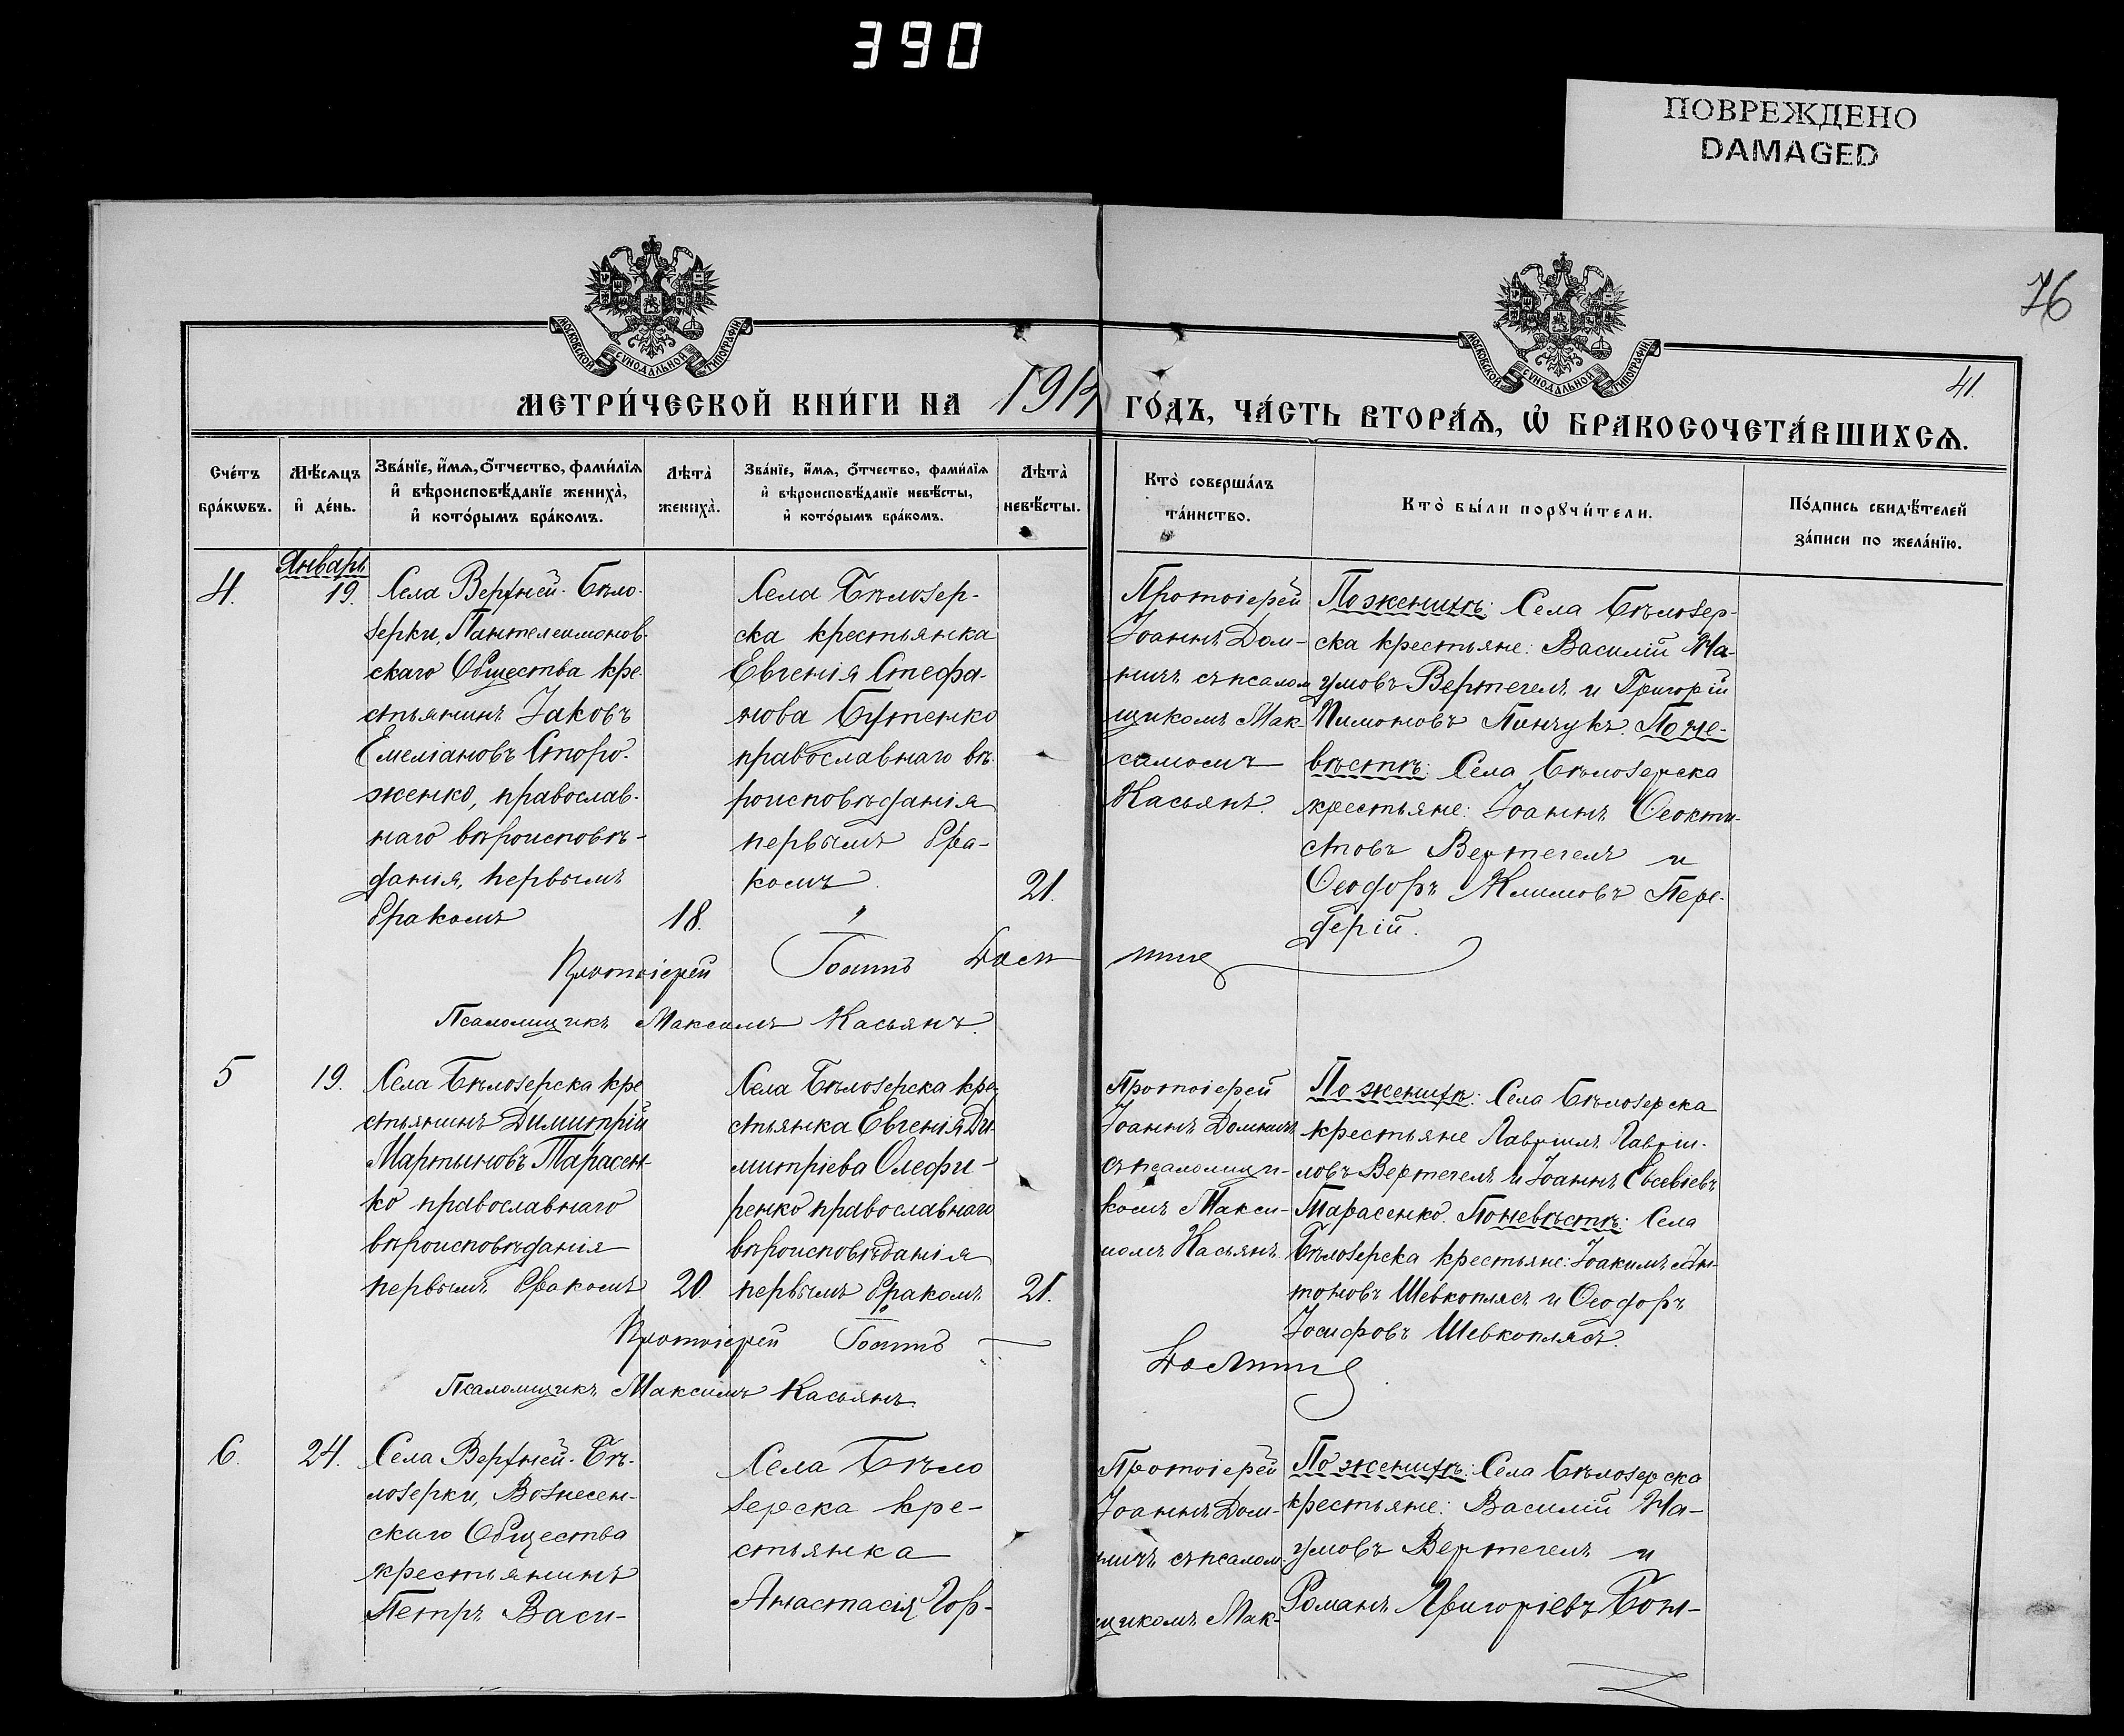 390
ПОВРЕЖДЕНО
DAMAGED
76
МОСКОВСКОЙ СѴНОДАЛЬНОЙ ТИПОГРАФІИ
МОСКОВСКОЙ СѴНОДАЛЬНОЙ ТИПОГРАФІИ
41.
МЕТРИ́ЧЕСКОЙ КНИ́ГИ НА
ГО́ДЪ, ЧА́СТЬ ВТОРА́Ѧ, Ѡ҆ БРАКОСОЧЕТА́ВШИХСѦ.
Сче́тъ
бра́кѡвъ.
Мѣ́сѧцъ
и҆ де́нь.
Зва́нїе, и҆́мѧ, ѻ҆́тчество, фами́лїѧ
и҆ вѣроисповѣ́данїе жениха̀,
и҆ кото́рымъ бра́комъ.
Лѣта̀
жениха̀.
Зва́нїе, и҆́мѧ, ѻ҆́тчество, фами́лїѧ
и҆ вѣроисповѣ́данїе невѣ́сты,
и҆ кото́рымъ бра́комъ.
Лѣта̀
невѣ́сты.
Кто̀ соверша́лъ
та́инство.
Кто̀ бы́ли порꙋчи́тели.
По́дпись свидѣ́телей
за́писи по жела́нїю.
4.
Январь
19.
Села Верхней-Бѣло-
зерки, Пантелеимонов-
скаго Общества кре-
стьянинъ Іаковъ
Емеліановъ Сторо-
женко, православ-
наго вѣроисповѣ-
данія, первымъ
бракомъ
18.
Села Бѣлозер-
ска крестьянка
Евгенія Стефа-
нова Бутенко
православнаго вѣ-
роисповѣданія
первымъ бра-
комъ.
21.
Протоіерей
Іоаннъ Дом-
ничъ съ псалом
щикомъ Мак-
симомъ
Касьянъ.
По женихѣ: Села Бѣлозер-
ска крестьяне: Василій На-
умовъ Вертегелъ и Григорій
Пимоновъ Пинчукъ. По не-
вѣстѣ: Села Бѣлозерска
крестьяне: Іоаннъ Ѳеокти-
стовъ Вертегелъ и
Ѳеодоръ Климовъ Пере-
дерій.
Протоіерей Іоаннъ
Псаломщикъ Максимъ Касьянъ.
5
19.
Села Бѣлозерска кре
стьянинъ Димитрій
Мартыновъ Тарасен-
ко православнаго
вѣроисповѣданія
первымъ бракомъ
20
Села Бѣлозерска кре-
стьянка Евгенія Ди
митріева Олефи-
ренко православнаго
вѣроисповѣданія
первымъ бракомъ
21.
Протоіерей
Іоаннъ Домничъ
съ псаломщи-
комъ Макси-
момъ Касьянъ
По женихѣ: Села Бѣлозерска
крестьяне Гавріилъ Гавріи-
ловъ Вертегелъ и Іоаннъ Евсевіевъ
Тарасенко. По невѣстѣ: Села
Бѣлозерска крестьяне: Іоакимъ Ан-
тоновъ Шевкоплясъ и Ѳеодоръ
Іосифовъ Шевкоплясъ.
Протоіерей Іоаннъ
Псаломщикъ Максимъ Касьянъ.
6.
24.
Села Верхней-Бѣ-
лозерки, Вознесен-
скаго Общества
крестьянинъ
Петръ Васи-
Села Бѣло
зерска кре-
стьянка
Анастасія Гор-
Протоіерей
Іоаннъ Дом-
ничъ съ псалом
щикомъ Мак-
По женихѣ: Села Бѣлозерска
крестьяне: Василій На-
умовъ Вертегелъ и
Романъ Григоріевъ Бон-